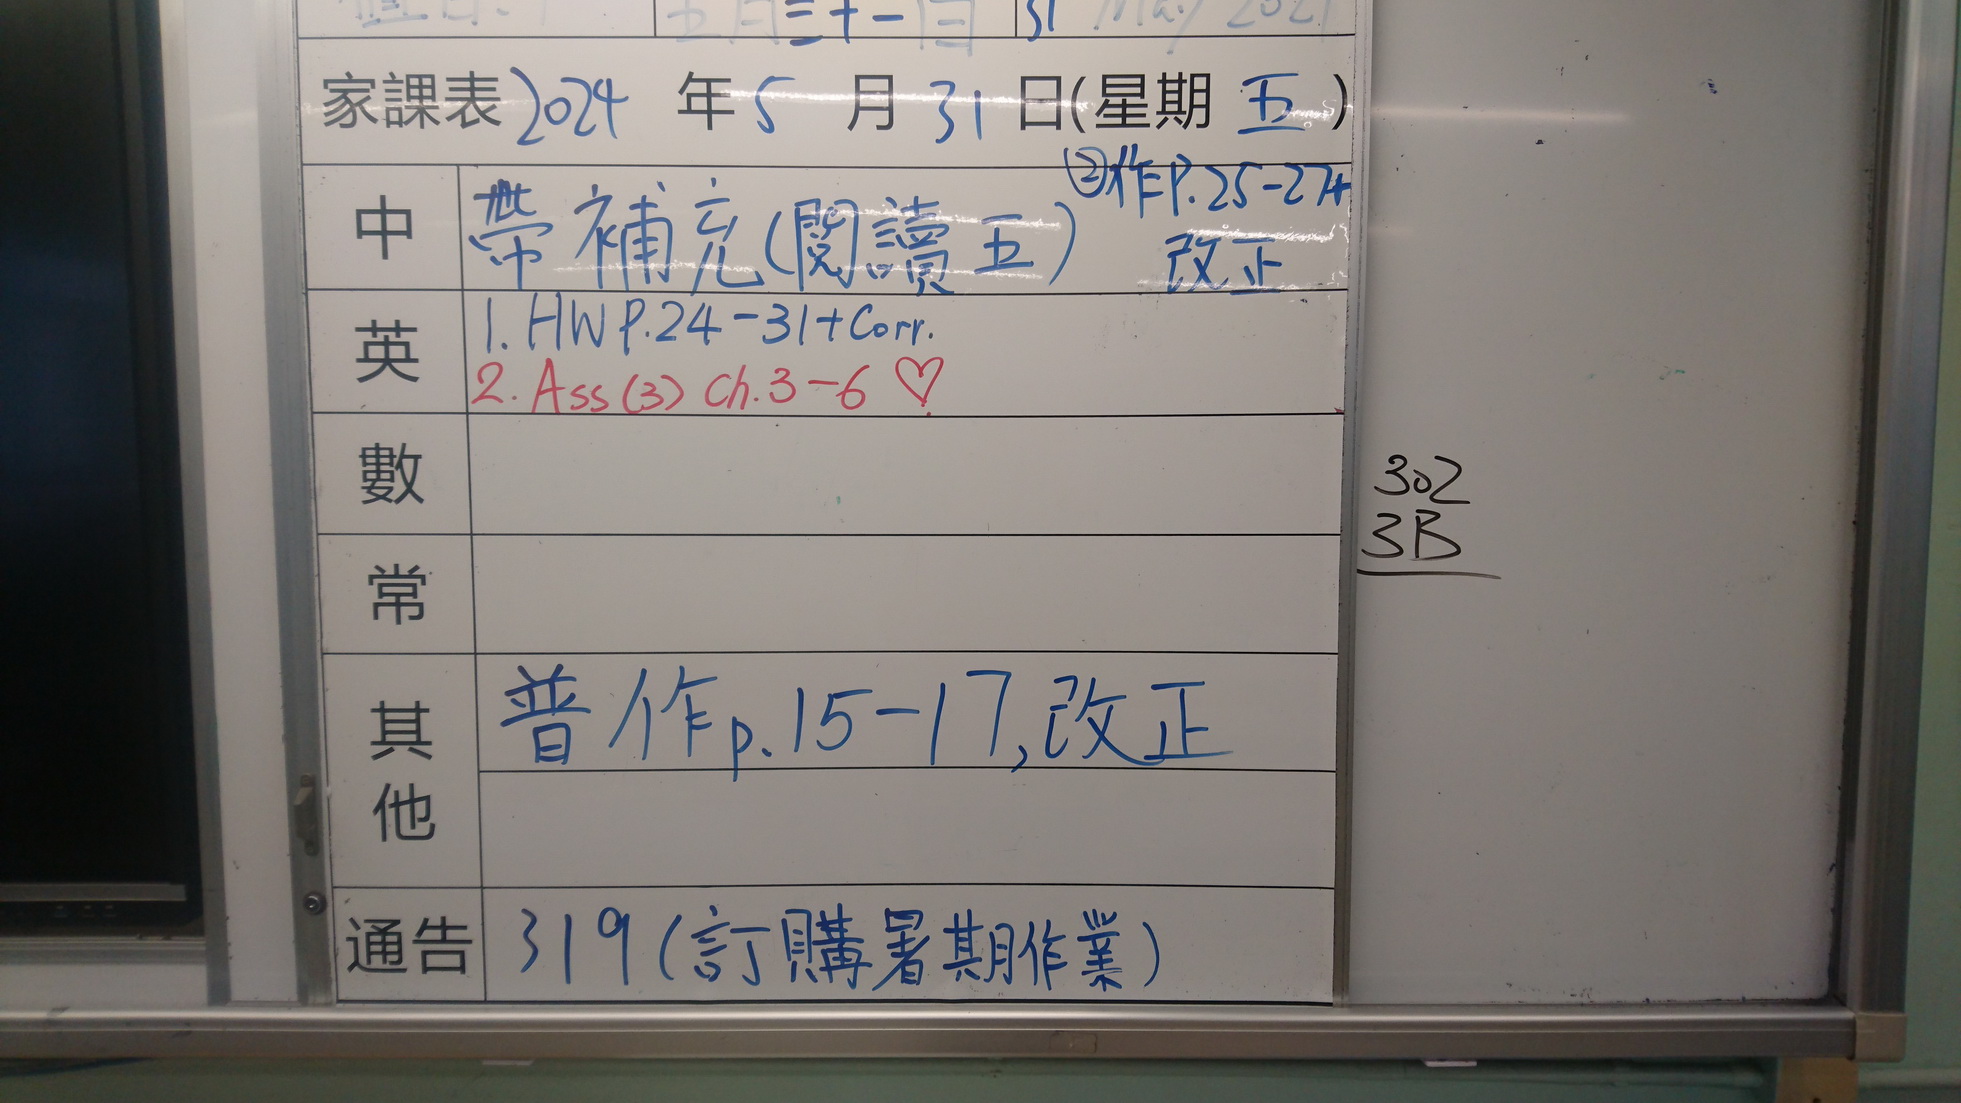 五月三十一日 31 May 2021
家課表 2024 年 5 月 31 日(星期 五)
中 帶補充(閱讀五) ②作P.25-27+
改正
英 1. HW P.24-31+Corr.
2. Ass(3) Ch.3-6 ♡
數
302
3B
常
其他 普作p.15-17,改正
通告 319(訂購暑期作業)